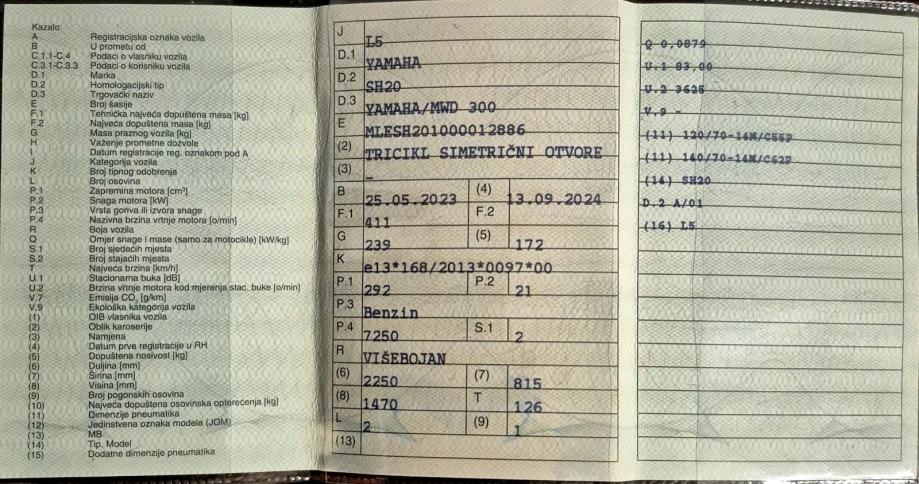 Kazalo:
A Registracijska oznaka vozila
B U prometu od
C.1.1-C.4 Podaci o vlasniku vozila
C.3.1-C.3.3 Podaci o korisniku vozila
D.1 Marka
D.2 Homologacijski tip
D.3 Trgovački naziv
E Broj šasije
F.1 Tehnička najveća dopuštena masa [kg]
F.2 Najveća dopuštena masa [kg]
G Masa praznog vozila [kg]
H Važenje prometne dozvole
I Datum registracije reg. oznakom pod A
J Kategorija vozila
K Broj tipnog odobrenja
L Broj osovina
P.1 Zapremina motora [cm³]
P.2 Snaga motora [kW]
P.3 Vrsta goriva ili izvora snage
P.4 Nazivna brzina vrtnje motora [o/min]
R Boja vozila
Q Omjer snage i mase (samo za motocikle) [kW/kg]
S.1 Broj sjedećih mjesta
S.2 Broj stajaćih mjesta
T Najveća brzina [km/h]
U.1 Stacionarna buka [dB]
U.2 Brzina vrtnje motora kod mjerenja stac. buke [o/min]
V.7 Emisija CO₂ [g/km]
V.9 Ekološka kategorija vozila
(1) OIB vlasnika vozila
(2) Oblik karoserije
(3) Namjena
(4) Datum prve registracije u RH
(5) Dopuštena nosivost [kg]
(6) Duljina [mm]
(7) Širina [mm]
(8) Visina [mm]
(9) Broj pogonskih osovina
(10) Najveća dopuštena osovinska opterećenja [kg]
(11) Dimenzije pneumatika
(12) Jedinstvena oznaka modela (JOM)
(13) MB
(14) Tip, Model
(15) Dodatne dimenzije pneumatika
J L5
D.1 YAMAHA
D.2 SH20
D.3 YAMAHA/MWD 300
E MLESH201000012886
(2) TRICIKL SIMETRIČNI OTVORE
(3) –
B 25.05.2023 (4) 13.09.2024
F.1 411 F.2
G 239 (5) 172
K e13*168/2013*0097*00
P.1 292 P.2 21
P.3 Benzin
P.4 7250 S.1 2
R VIŠEBOJAN
(6) 2250 (7) 815
(8) 1470 T 126
L 2 (9) 1
(13)
Q 0,0879
U.1 83,00
U.2 3625
V.9 -
(11) 120/70-14M/C55P
(11) 140/70-14M/C62P
(14) SH20
D.2 A/01
(16) L5